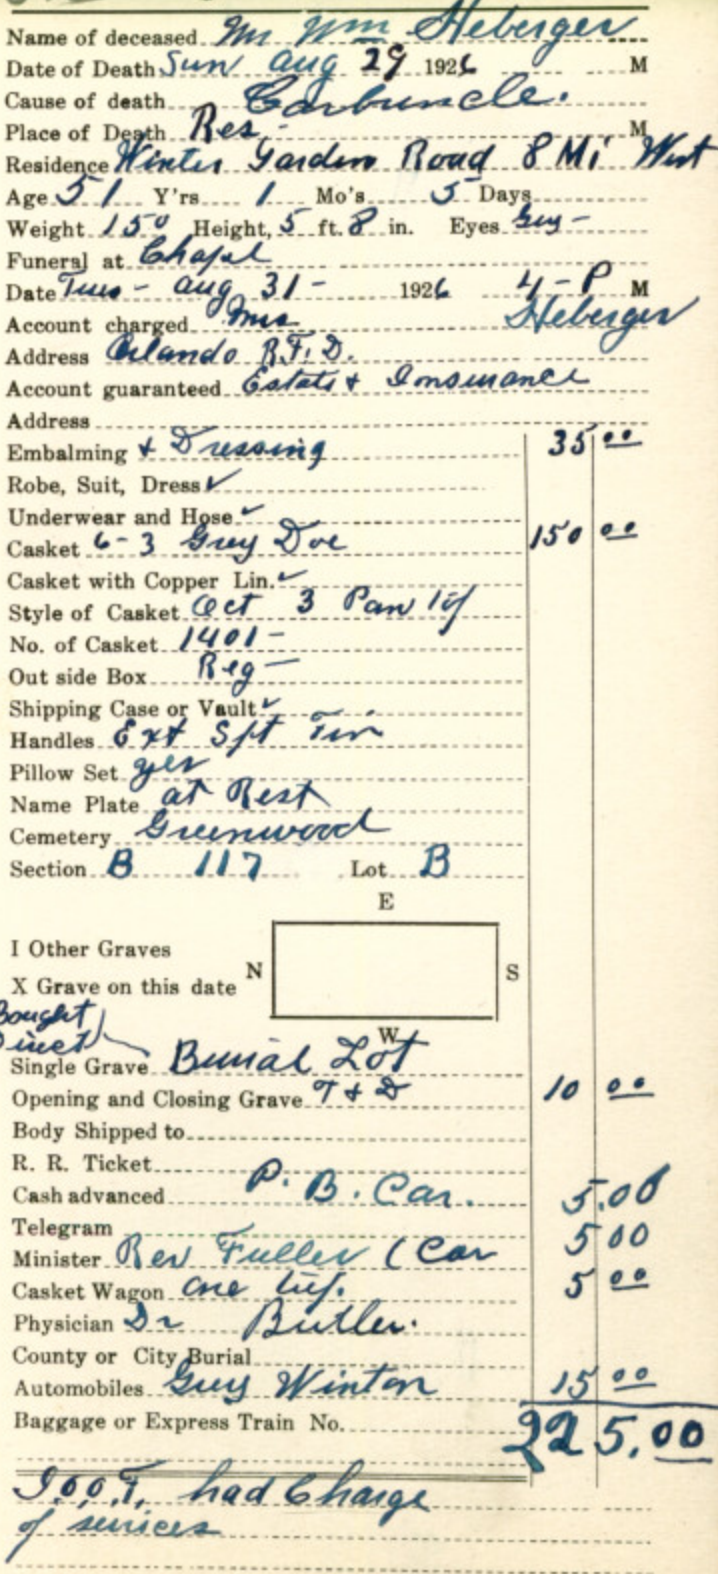 Name of deceased Mr Wm Heberger
Date of Death Sun Aug 29 1926 M
Cause of death Carbuncle.
Place of Death Res- M
Residence Winter Garden Road 8 Mi West
Age 51 Y'rs 1 Mo's 5 Days
Weight 150 Height, 5 ft. 8 in. Eyes Grey -
Funeral at Chapel
Date Tues - Aug 31 - 1926 4 - P M
Account charged Mrs Heberger
Address Orlando R.F.D.
Account guaranteed Estate + Insurance
Address
Embalming + Dressing 35 00
Robe, Suit, Dress ✓
Underwear and Hose ✓
Casket 6-3 Grey Doe 150 00
Casket with Copper Lin. ✓
Style of Casket Oct 3 Pan
No. of Casket 1401 -
Out side Box Reg -
Shipping Case or Vault ✓
Handles Ext
Pillow Set yes
Name Plate At Rest
Cemetery Greenwood
Section B 117 Lot B
E
I Other Graves
N S
X Grave on this date
W
Bought Direct
Single Grave Burial Lot
Opening and Closing Grave T & D 10 00
Body Shipped to
R. R. Ticket
Cash advanced P. B. Car. 5.00
Telegram 5 00
Minister Rev Fuller (Car
Casket Wagon One trip. 5 00
Physician Dr Butler.
County or City Burial
Automobiles Grey Winton 15 00
Baggage or Express Train No. 225.00
I.O.O.F. had Charge
of services